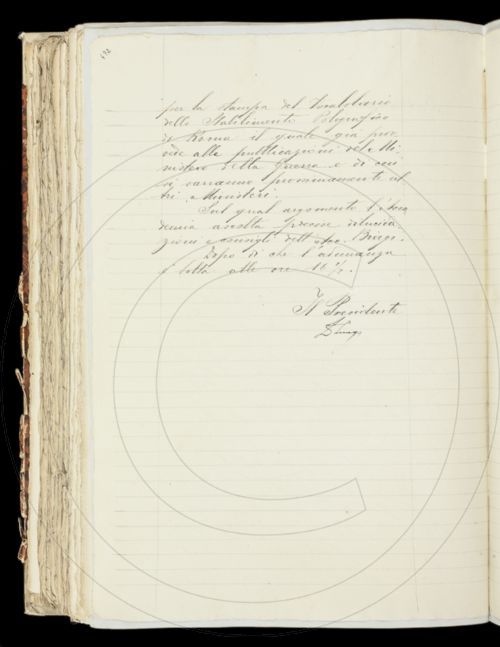 per la stampa del
dello Stabilimento Poligrafico
di Roma il quale già prov
vede alla pubblicazioni del Mi
nistero della Guerra e di cui
si varranno prossimamente al
tri Ministeri.
Sul qual argomento l'Acca
demia ascolta precise dilucida
zioni e consigli dell'
Dopo di che l'adunanza
è tolta alle ore 16 ½.
Il Presidente